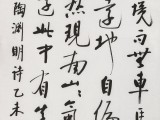 境而無車馬
遠地自偏
然現南山氣
還此中有真
陶淵明詩乙未